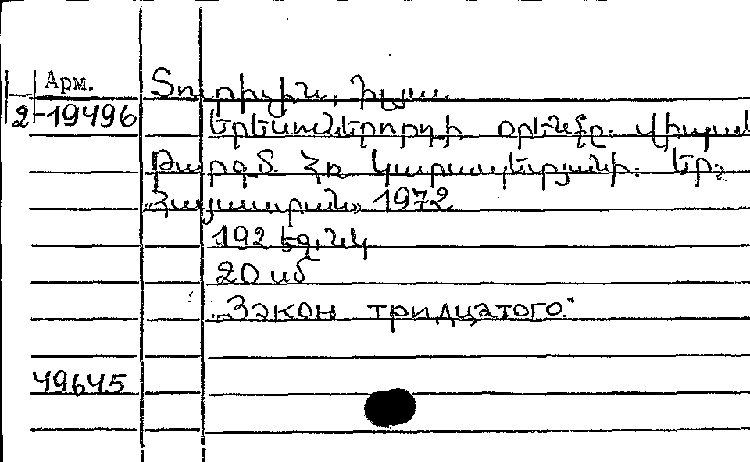 Арм.
Տուրիչին, Իլյա
2-19496
Երեսուներորդի օրենքը. վիպակ
Թարգմ. Հռ. Կարապետյանի. Եր.
«Հայաստան» 1972
192 էջ. նկ
20 սմ
„Закон тридцатого."
49645